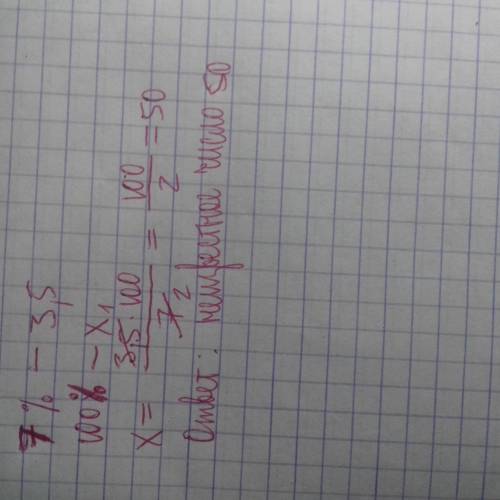 7% – 3,5
100% – x
x = 3,5 · 100 / 7 = 100 / 2 = 50
1
2
Ответ: неизвестное число 50